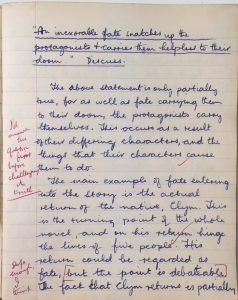 "An inexorable fate snatches up the
protagonists & carries them helpless to their
doom." Discuss.
The above statement is only partially
true, for as well as fate carrying them
to their doom, the protagonists carry
themselves. This occurs as a result
of their differing characters, and the
things that their characters cause
them to do.
The main example of fate entering
into the story, is the actual
return of the native, Clym. This
is the turning point of the whole
novel and on his return hinge
the lives of five people. His
return could be regarded as
fate, but the point is debateable.
The fact that Clym returns is partially
I'd
answer
the
question
first
before
challenging
it